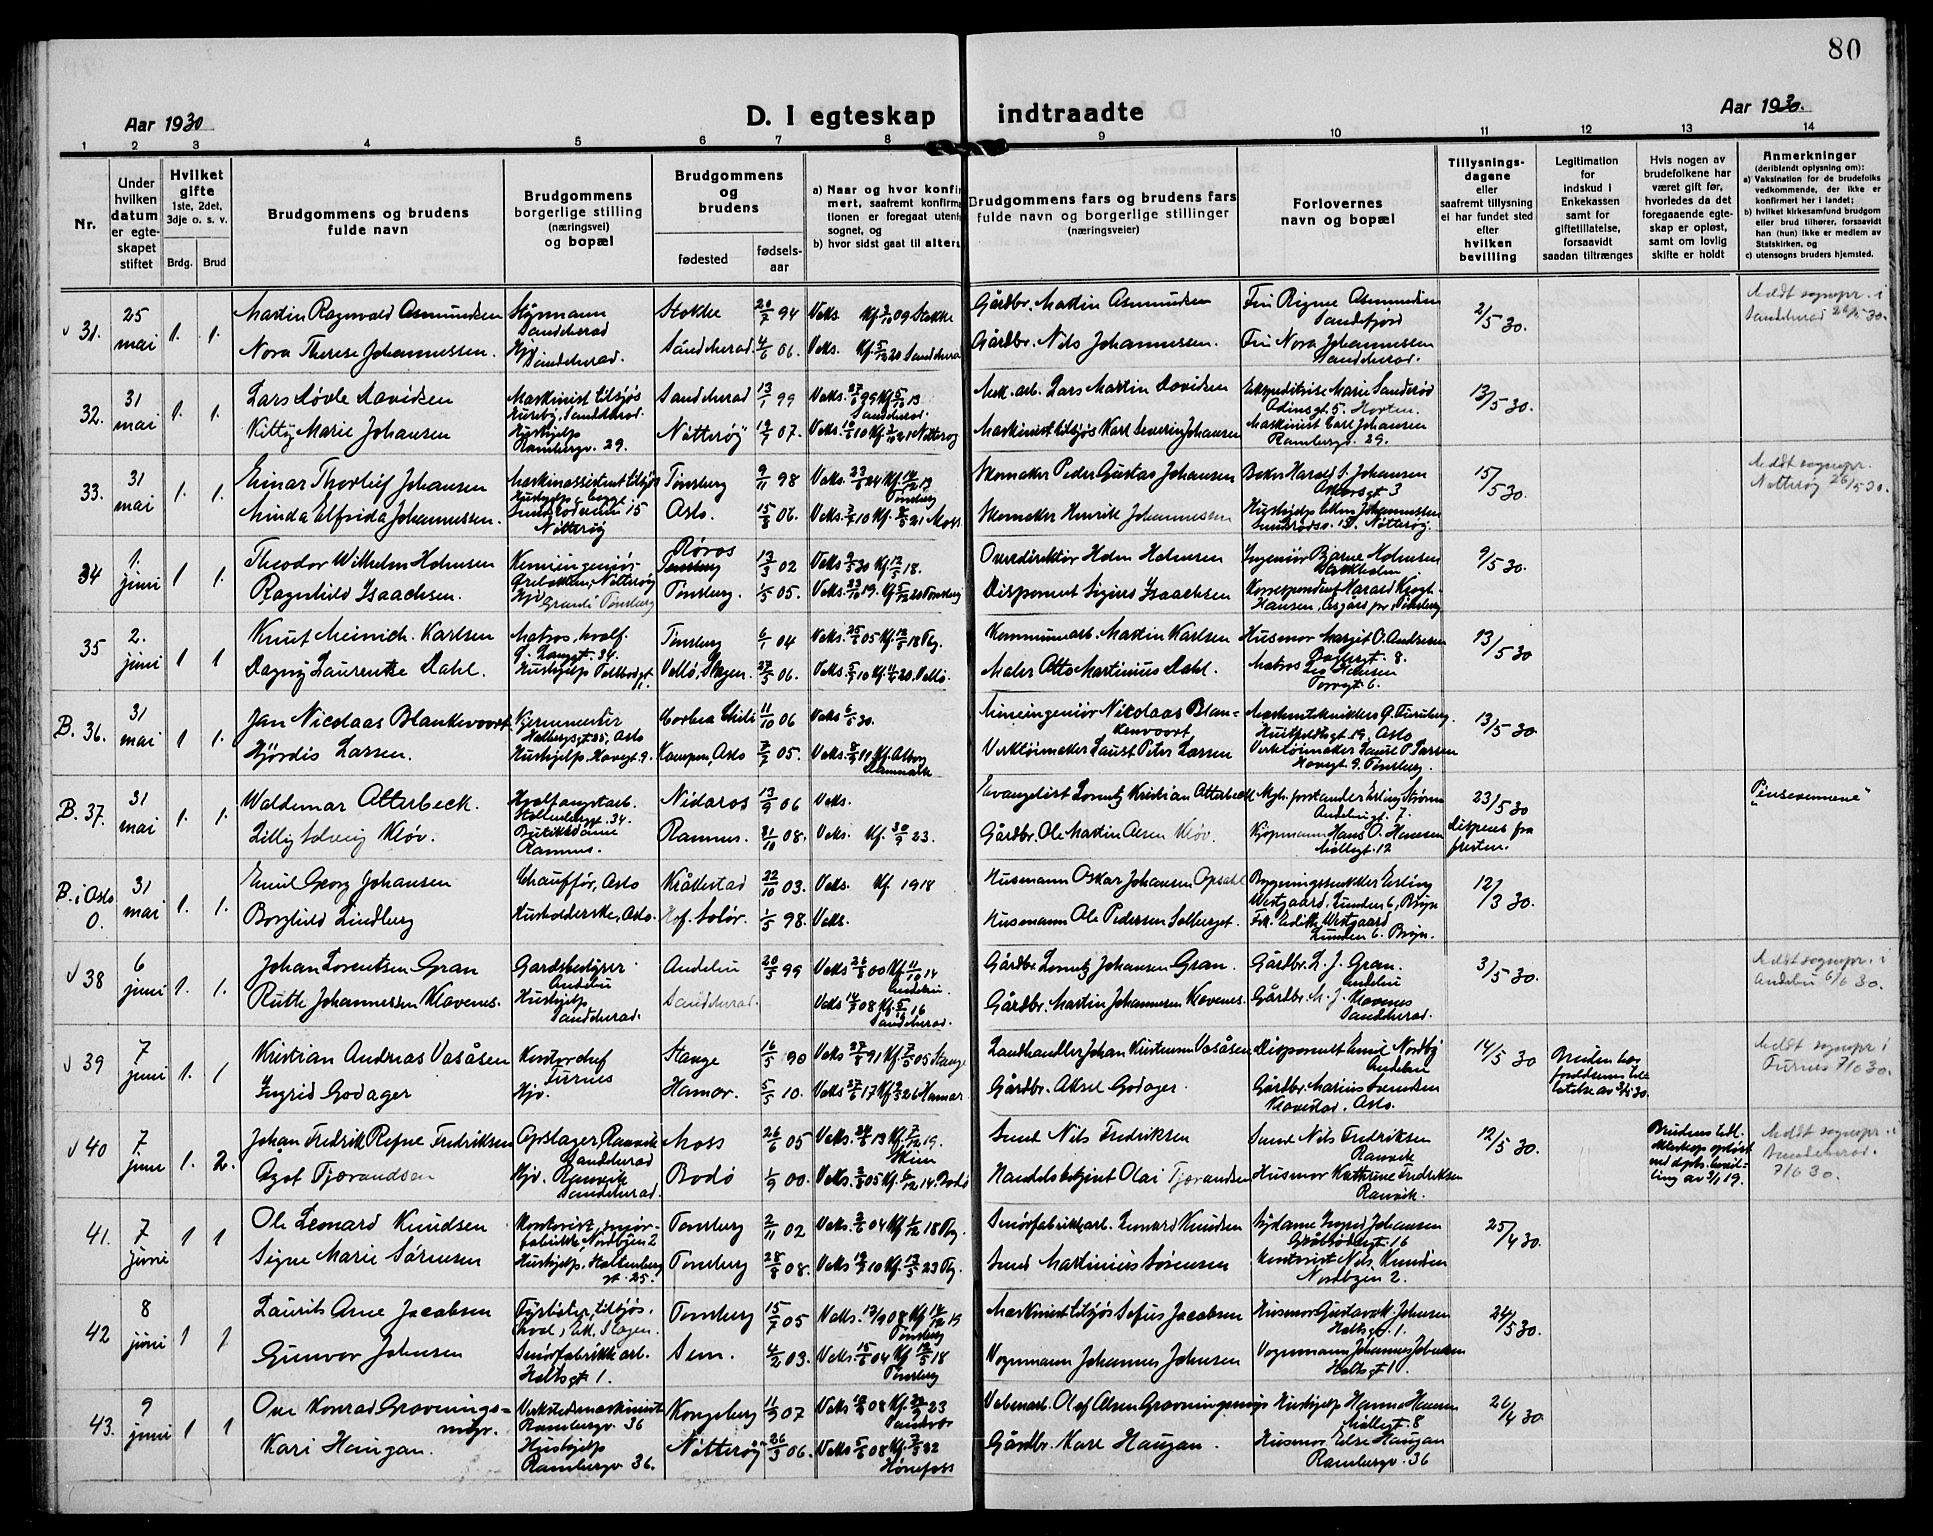 80
Aar 1930
D. I egteskap indtraadte
Aar 1930.
1 2 3 4 5 6 7 8 9 10 11 12 13 14
Nr.
Under hvilken datum er egteskapet stiftet
Hvilket gifte 1ste, 2det, 3dje o. s. v.
Brdg. Brud
Brudgommens og brudens fulde navn
Brudgommens borgerlige stilling (næringsvei) og bopæl
Brudgommens og brudens
fødested
fødselsaar
a) Naar og hvor konfirmert, saafremt konfirmationen er foregaat utenfor sognet, og
b) hvor sidst gaat til alters
Brudgommens fars og brudens fars fulde navn og borgerlige stillinger (næringsveier)
Forlovernes navn og bopæl
Tillysningsdagene eller saafremt tillysning ei har fundet sted efter hvilken bevilling
Legitimation for indskud i Enkekassen samt for giftetillatelse, forsaavidt saadan tiltrænges
Hvis nogen av brudefolkene har været gift før, hvorledes da det foregaaende egteskap er opløst, samt om lovlig skifte er holdt
Anmerkninger (deriblendt oplysning om):
a) Vaksination for de brudefolks vedkommende, der ikke er konfirmert her i landet;
b) hvilket kirkesamfund brudgom eller brud tilhører, forsaavidt han (hun) ikke er medlem av Statskirken, og
c) utensogns bruders hjemsted.
31. 25 mai 1. 1. Martin Ragnvald Asmundsen Styrmann Sandeherad Stokke 20/7 94 Vaks. Kf. 09 Stokke Gårdbr. Martin Asmundsen Fru Signe Asmundsen Sandefjord 2/5 30. Meldt sognepr. i Sandeherad 26/5 30.
Nora Therese Johannessen. Hjv. Sandeherad. Sandeherad. 4/6 06. Vaks. Kf. 20 Sandeherad Gårdbr. Nils Johannessen. Fru Nora Johannessen Sandeherad.
32. 31 mai 1. 1. Lars Løvle Davidsen Maskinist tilsjøs Sandeherad. Sandeherad 13/1 99 Vaks. 99 Kf. 13 Sandeherad. Mek. arb. Lars Martin Davidsen Ekspeditrise Marie Sanderød Odinsgt. 5. Horten. 13/5 30.
Kitty Marie Johansen Hushjelp Rambergv. 29. Nøtterøy 07. Vaks. 10 Kf. 21 Nøtterøy Maskinist tilsjøs Karl Severin Johansen Maskinist Carl Johansen Rambergv. 29.
33. 31 mai 1. 1. Einar Thorleif Johansen Maskinassistent tilsjøs Tønsberg 9/11 98 Vaks. 24 Kf. 13 Tønsberg Skomaker Peder Gustav Johansen Baker Harald J. Johansen 15/5 30. Meldt sognepr. Nøtterøy 26/5 30.
Minda Elfrida Johannessen. Hushjelp 15 Nøtterøy Oslo. 15/8 06. Vaks. 10 Kf. 21 Moss. Skomaker Henrik Johannessen Nøtterøy.
34 1. juni 1 1. Theodor Wilhelm Holmsen Kemiingeniør Nøtterøy Røros 13/3 02 Vaks 30 Kf. 18. Overdirektør Holm Holmsen Ingeniør Bjarne Holmsen Stockholm 9/5 30.
Ragnhild Isaachsen. Hjv. Tønsberg Tønsberg. 1/5 05. Vaks. 19. Kf. 20 Tønsberg Disponent Sigurd Isaachsen Korrespondent Harald Krogh-Hansen, Tønsberg
35 2. juni 1 1 Knut Meinich Karlsen Matros, hvalf. 34. Tønsberg 6/1 04 Vaks. 05 Kf. 18 Tbg. Kommunearb. Martin Karlsen Husmor Margit O. Andresen 8. 13/5 30
Dagny Laurentse Dahl. Hushjelp Tollbodgt. Vallø, Slagen. 27/5 06. Vaks. 10 Kf. 20. Vallø. Maler Otto Martinius Dahl. Matros Hansen Torvgt. 6.
B. 36. 31 mai 1 1. Jan Nicolaas Blankevoort Kjernemester Holbergsgt. 25, Oslo Chile 11/10 06 Vaks. 30. Mineingeniør Nicolaas Blankevoort Huitfeldtsgt 19, Oslo 13/5 30.
Hjørdis Larsen. Hushjelp, Havegt. 9. Kampen, Oslo 7/2 05. Vaks. 11 Kf. Ålborg Danmark Verktøimaker Laust Peter Larsen Verktøimaker Laust P. Larsen Havegt. 9. Tønsberg.
B. 37. 31 mai 1. 1. Waldemar Otterbeck. Hvalfangstarb. Stoltenbergt. 34. Nidaros 13/9 06 Vaks. Evangelist Lorentz Kristian Otterbeck Mgh. forstander Erling Strøm 23/5 30 Dispens fra fristen. "Pinsevennene"
Lilly Solveig Kløv. Butikkdame Ramnes. Ramnes. 21/10 08. Vaks. Kf. 30/9 23. Gårdbr. Ole Martin Olsen Kløv. Kjøpmann Hans O. Hansen Møllegt. 12
B. i Oslo 0. 31 mai 1. 1. Emil Georg Johansen Chauffør, Oslo Kråkstad 22/10 03. Vaks. Kf. 1918 Husmann Oskar Johansen Opsahl Bygningssnekker Erling Westgaard, Lunden 6, Bryn 12/3 30.
Borghild Lindberg Husholderske, Oslo. Hof, Solør. 1/5 98. Vaks. Husmann Ole Pedersen Solberget. Frk. Edith Westgaard Lunden 6. Bryn.
38 6 juni 1. 1. Johan Lorentsen Gran Gardsbestyrer Andebu Andebu 20/5 99 Vaks 00 Kf. 14 Andebu. Gårdbr. Lorentz Johansen Gran. Gårdbr. L. J. Gran. Andebu 3/5 30. Meldt sognepr. i Andebu 6/6 30.
Ruth Johannessen Klavenes. Hushjelp Sandeherad. Sandeherad. Vaks 08 Kf. 16 Sandeherad. Gårdbr. Martin Johannessen Klavenes. Gårdbr. M. J. Klavenes Sandeherad.
39 7 juni 1. 1 Kristian Andreas Vasåsen Kontorchef Furnes Stange 16/5 90 Vaks 91 Kf. 05 Stange Landhandler Johan Kristensen Vasåsen Disponent Emil Nordby Andebu 14/5 30 Bruden har foreldrenes tillatelse av 30. Meldt sognepr. i Furnes 7/6 30.
Ingrid Godager Hjv. Hamar. 5/5 10. Vaks 17 Kf. 26 Hamar. Gårdbr. Aksel Godager. Gårdbr. Marius Svendsen Oslo.
40 7. juni 1. 2. Johan Fredrik Refne Fredriksen Opslager, Ranvik Sandeherad Moss 26/6 05 Vaks. 13 Kf. 19. Skien Smed Nils Fredriksen Smed Nils Fredriksen Ranvik 12/5 30. Brudens tidl. ekteskap opløst ved dpts. bevilling av 19. Meldt sognepr. i Sandeherad. 7/6 30.
Ågot Tjærandsen Hjv. Ranvik Sandeherad. Bodø 1/9 00. Vaks. 05 Kf. 14. Bodø Handelsbetjent Olai Tjærandsen Husmor Kathrine Fredriksen Ranvik.
41. 7 juni 1 1 Ole Leonard Knudsen Kontorist, smørfabrikk, Nordbyen 2 Tønsberg 2/11 02 Vaks. 04 Kf. 18 Tbg. Smørfabrikkarb. Leonard Knudsen Sydame Ingrid Johansen Gråbrødregt. 16 25/4 30.
Signe Marie Sørensen Hushjelp, Stoltenbergt. 25. Tønsberg 28/8 08. Vaks 10 Kf. 23 Tbg. Smed Martinius Sørensen Kontorist Nils Knudsen Nordbyen 2.
42 8 juni 1 1 Laurits Arne Jacobsen Fyrbøter, tilsjøs, Eik, Slagen. Tønsberg 15/7 05 Vaks. 08 Kf. 19 Tønsberg Maskinist tilsjøs Sofus Jacobsen Husmor Gustava K. Johnsen Holtsgt. 1. 24/5 30.
Gunvor Johnsen Smørfabrikkarb. Holtsgt 1. Sem. 4/2 03. Vaks. 04 Kf. 18 Tønsberg Vognmann Johannes Johnsen Vognmann Johannes Johnsen Holtsgt 1
43. 9 juni 1 1 Ove Konrad Gravningsmyr. Verkstedsmaskinist Rambergv. 36 Kongsberg 11/9 07 Vaks 08 Kf. 23 Våbenarb. Olaf Olsen Gravningsmyr Hushjelp Hanna Hansen Møllegt. 8 26/4 30.
Kari Haugan. Hushjelp Rambergv 36. Nøtterøy 26/3 06. Vaks 08 Kf. 22 Hønefoss Gårdbr. Karl Haugan. Husmor Else Haugan Rambergv. 36